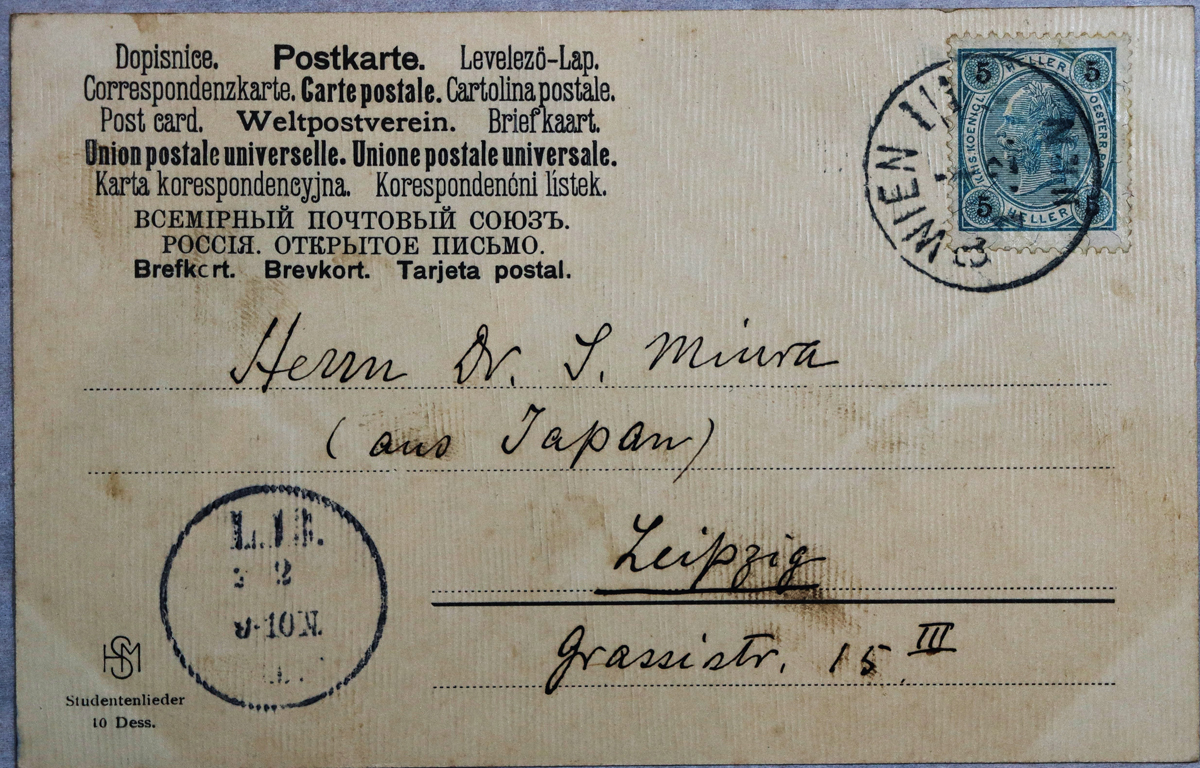 Dopisnice. Postkarte. Levelezö-Lap.
Correspondenzkarte. Carte postale. Cartolina postale.
Post card. Weltpostverein. Briefkaart.
Union postale universelle. Unione postale universale.
Karta korespondencyjna. Korespondenčni lístek.
ВСЕМІРНЫЙ ПОЧТОВЫЙ СОЮЗЪ.
РОССІЯ. ОТКРЫТОЕ ПИСЬМО.
Brefkort. Brevkort. Tarjeta postal.
5 HELLER 5
OESTERR.
5 HELLER 5
WIEN
WIEN
Herrn Dr. S. Miura
(aus Japan)
Leipzig
Grassistr. 15 III
L.13.
2
9-10N.
HSM
Studentenlieder
10 Dess.